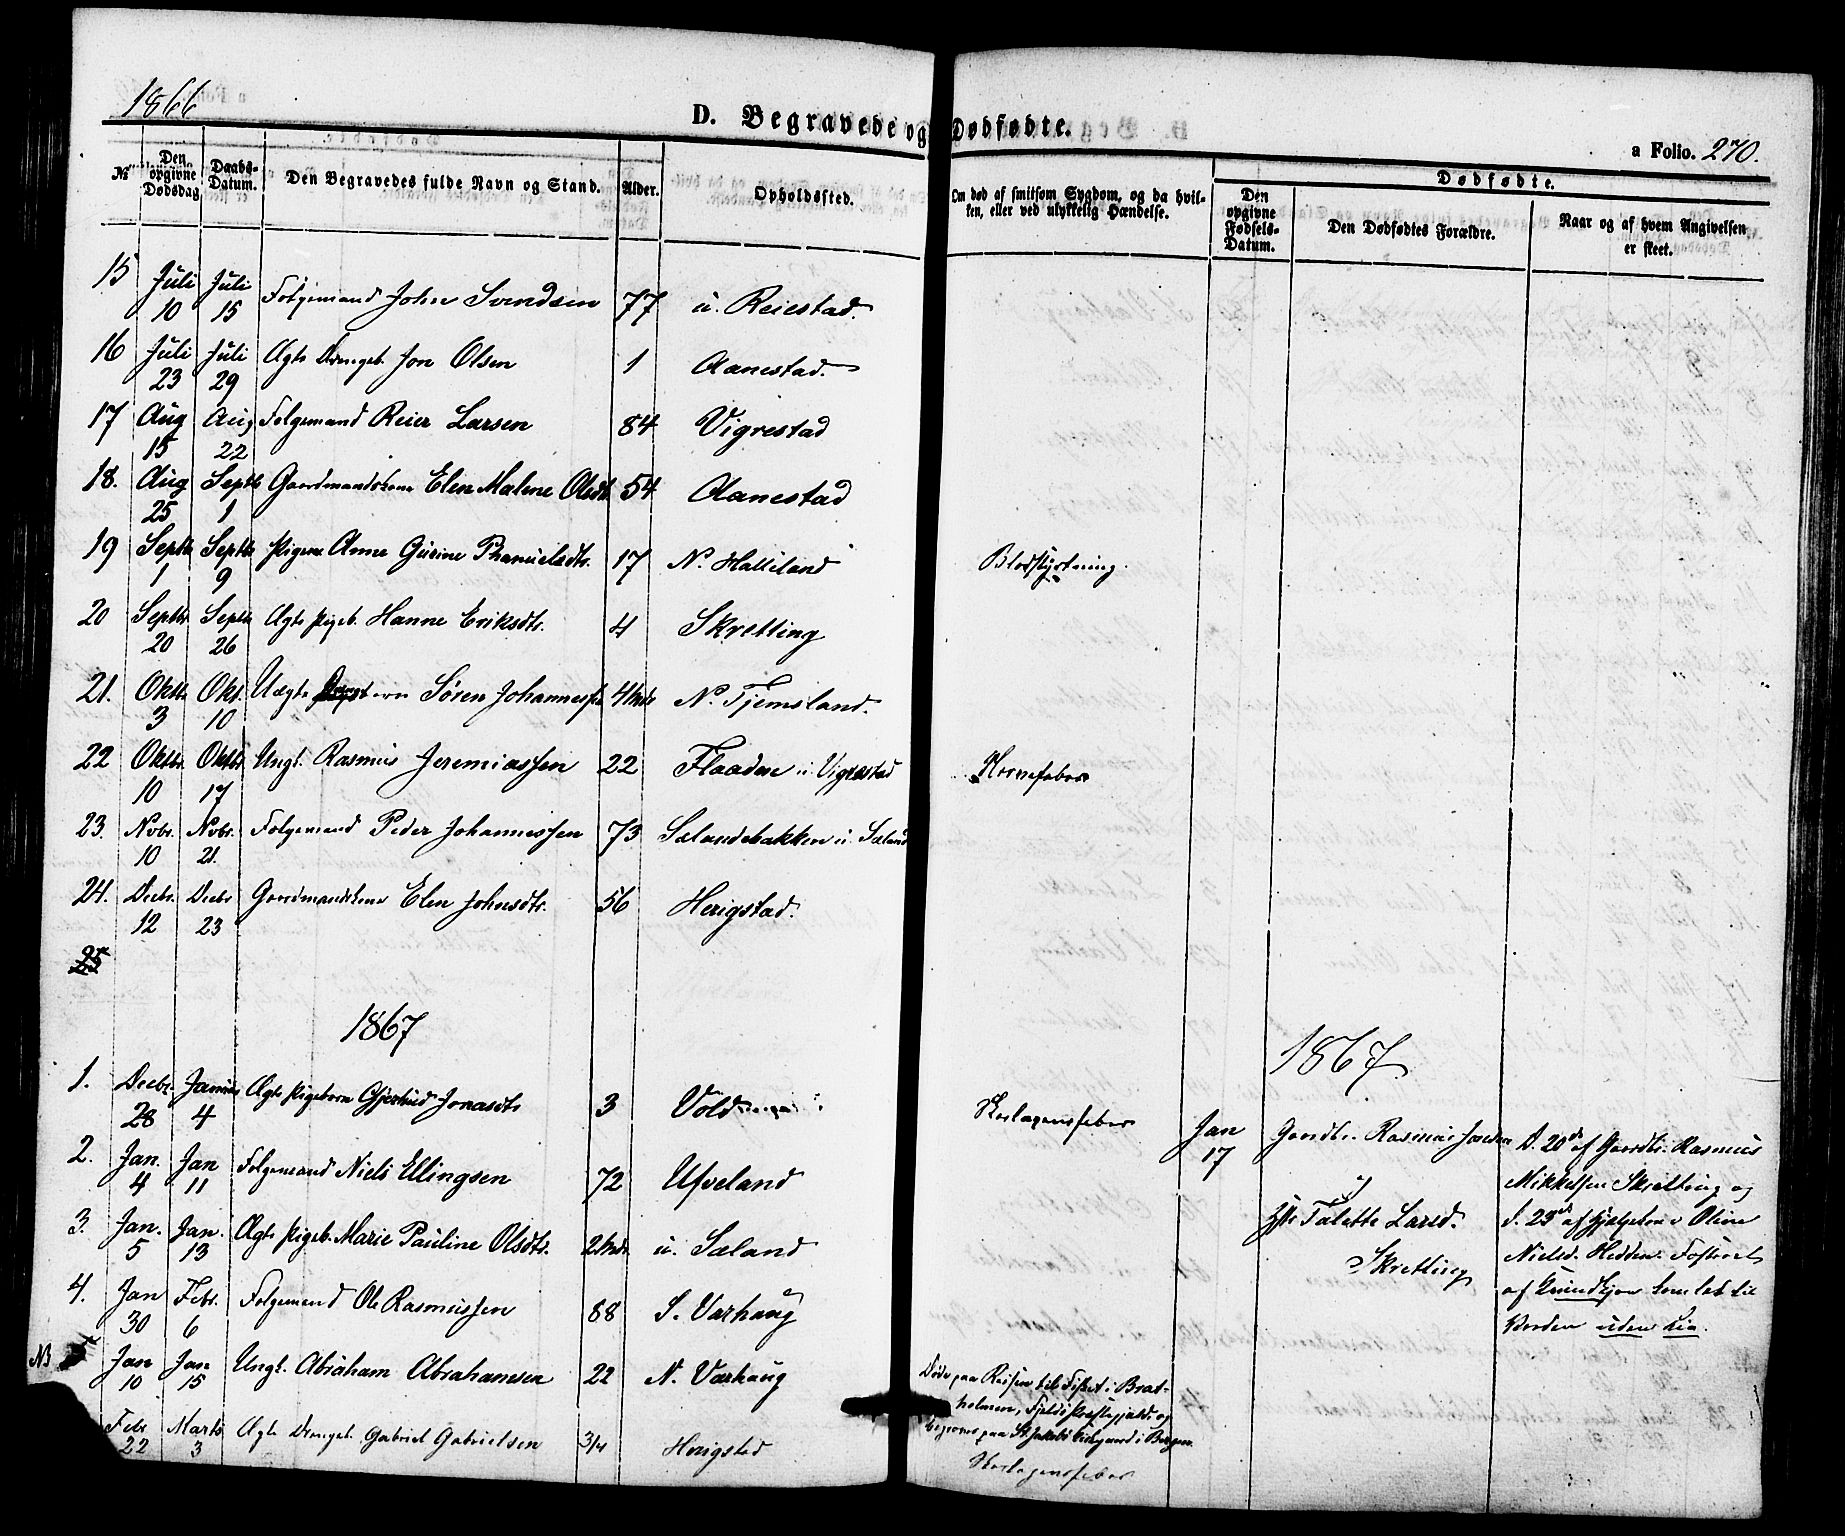 1866
D. Begravede og Dødfødte.
a Folio. 270.
№
Den opgivne Dødsdag
Daabs-Datum.
Den Begravedes fulde Navn og Stand.
Alder.
Opholdssted.
Om død af smitsom Sygdom, og da hvilken, eller ved ulykkelig Hændelse.
Dødfødte.
Den opgivne Fødsels-Datum.
Den Dødfødtes Forældre.
Naar og af hvem Angivelsen er skeet.
15 Juli 10 Juli 15 Folgemand John Svendsen 77 u. Reiestad.
16 Juli 23 Juli 29 Ægte Drengeb. Jon Olsen 1 Aanestad.
17 Aug 15 Aug 22 Folgemand Reier Larsen 84 Vigrestad
18. Aug 25 Septb 1 Gaardmandskone Elen Malene Olsdt. 54 Aanestad
19 Septb 1 Septb 9 Pigen Anne Gurine Phanuelsdtr. 17 N. Hålliland Blodstyrtning.
20 Septbr 20 Septb 26 Ægte Pigeb. Hanne Eriksdtr. 4 Skretting
21. Oktb 3 Okt. 10 Uægte Søren Johannessen 4 Mdr N. Tjemsland.
22 Oktbr. 10 Oktbr 17 Ungk. Rasmus Jeremiassen 22 Flaadene u. Vigrestad Nervefeber
23. Novbr. 10 Novbr. 21. Folgemand Peder Johannessen 73 Sælandsbakken u. Sæland
24. Decbr. 12 Decbr 23 Gaardmandskone Elen Johnsdtr. 56 Herigstad.
25
1867
1867
1. Decbr. 28 Januar 4 Ægte Pigebarn Gjertrud Jonasdtr 3 Vold Skarlagensfeber
Jan 17 Gaardbr. Rasmus Jonsen
og
Hst Talette Larsd.
Skretting
D. 20de af Gaardbr. Rasmus
Mikkelsen Skretting og
d. 23de af Hjelpekone Oline
Nielsd. Hedden. Fosteret
af Kvindkjøn kom let til
Verden uden Liv.
2. Jan. 4 Jan 11 Folgemand Niels Ellingsen 72 Ufveland
3. Jan. 5 Jan. 13 Ægte Pigeb. Marie Pauline Olsdtr. 2 Mdr. u. Sæland
4. Jan 30 Febr. 6 Folgemand Ole Rasmussen 88 S. Varhaug
NB 5 Jan 10 Jan 15 Ungk. Abraham Abrahamsen 22 N. Varhaug
Døde paa Reisen til Fisket i Brat-
holmen, Fjelds Præstegjæld og
begraves paa St. Jakobs Kirkegaard i Bergen.
Febr 22 Marts 3 Ægte Drengeb. Gabriel Gabrielsen 3/4 Herigstad Skarlagensfeber